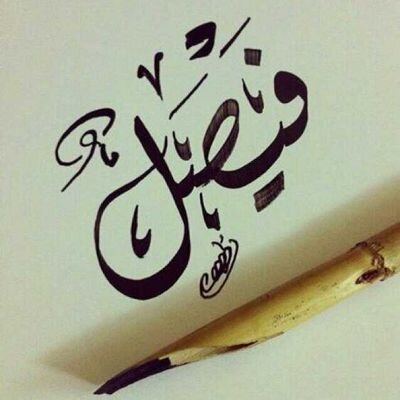 فَيصَل